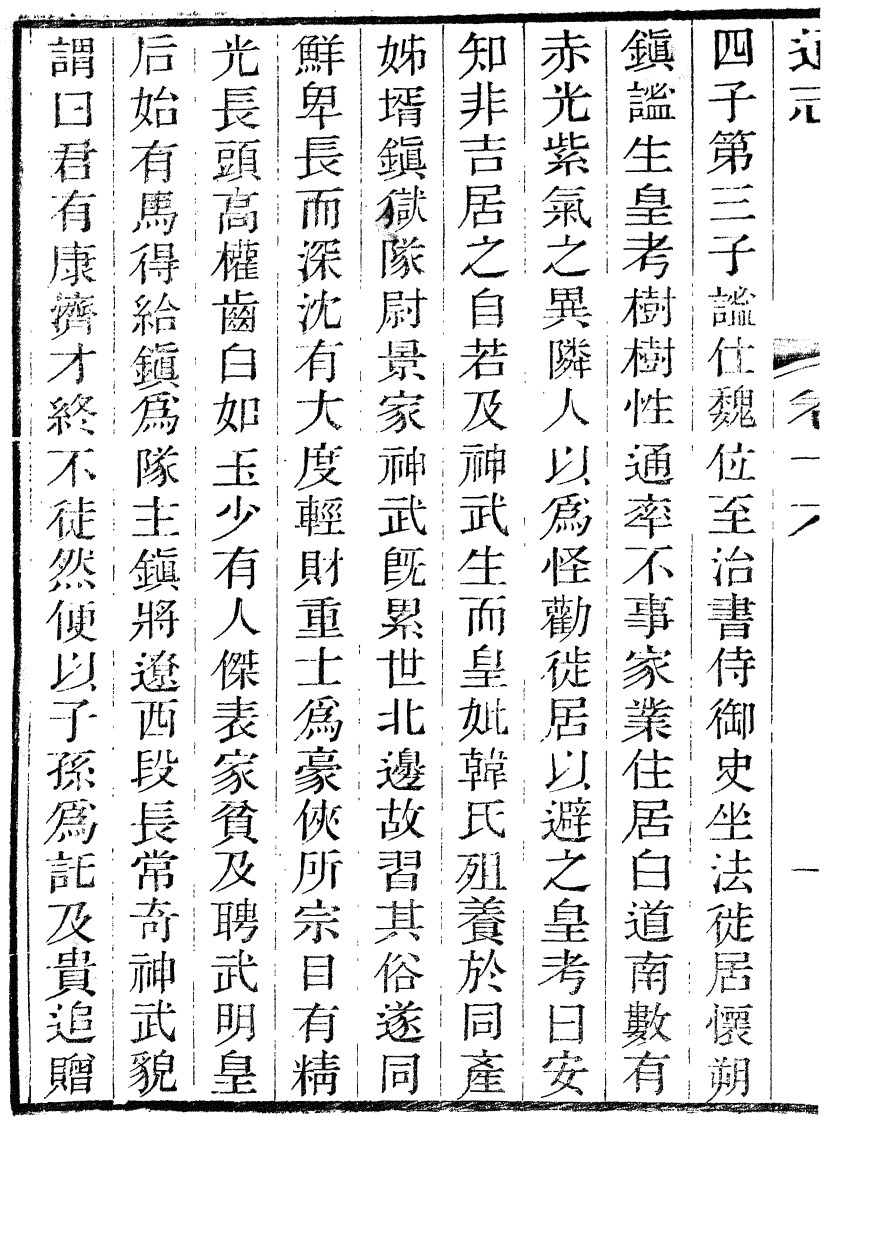 通志 卷十六 一
四子第三子謐仕魏位至治書侍御史坐法徙居懷朔
鎮謐生皇考樹樹性通率不事家業住居白道南數有
赤光紫氣之異隣人以爲怪勸徙居以避之皇考曰安
知非吉居之自若及神武生而皇妣韓氏殂養於同產
姊壻鎮獄隊尉景家神武旣累世北邊故習其俗遂同
鮮卑長而深沈有大度輕財重士爲豪俠所宗目有精
光長頭高權齒白如玉少有人傑表家貧及聘武明皇
后始有馬得給鎮爲隊主鎮將遼西段長常奇神武貌
謂曰君有康濟才終不徒然便以子孫爲託及貴追贈